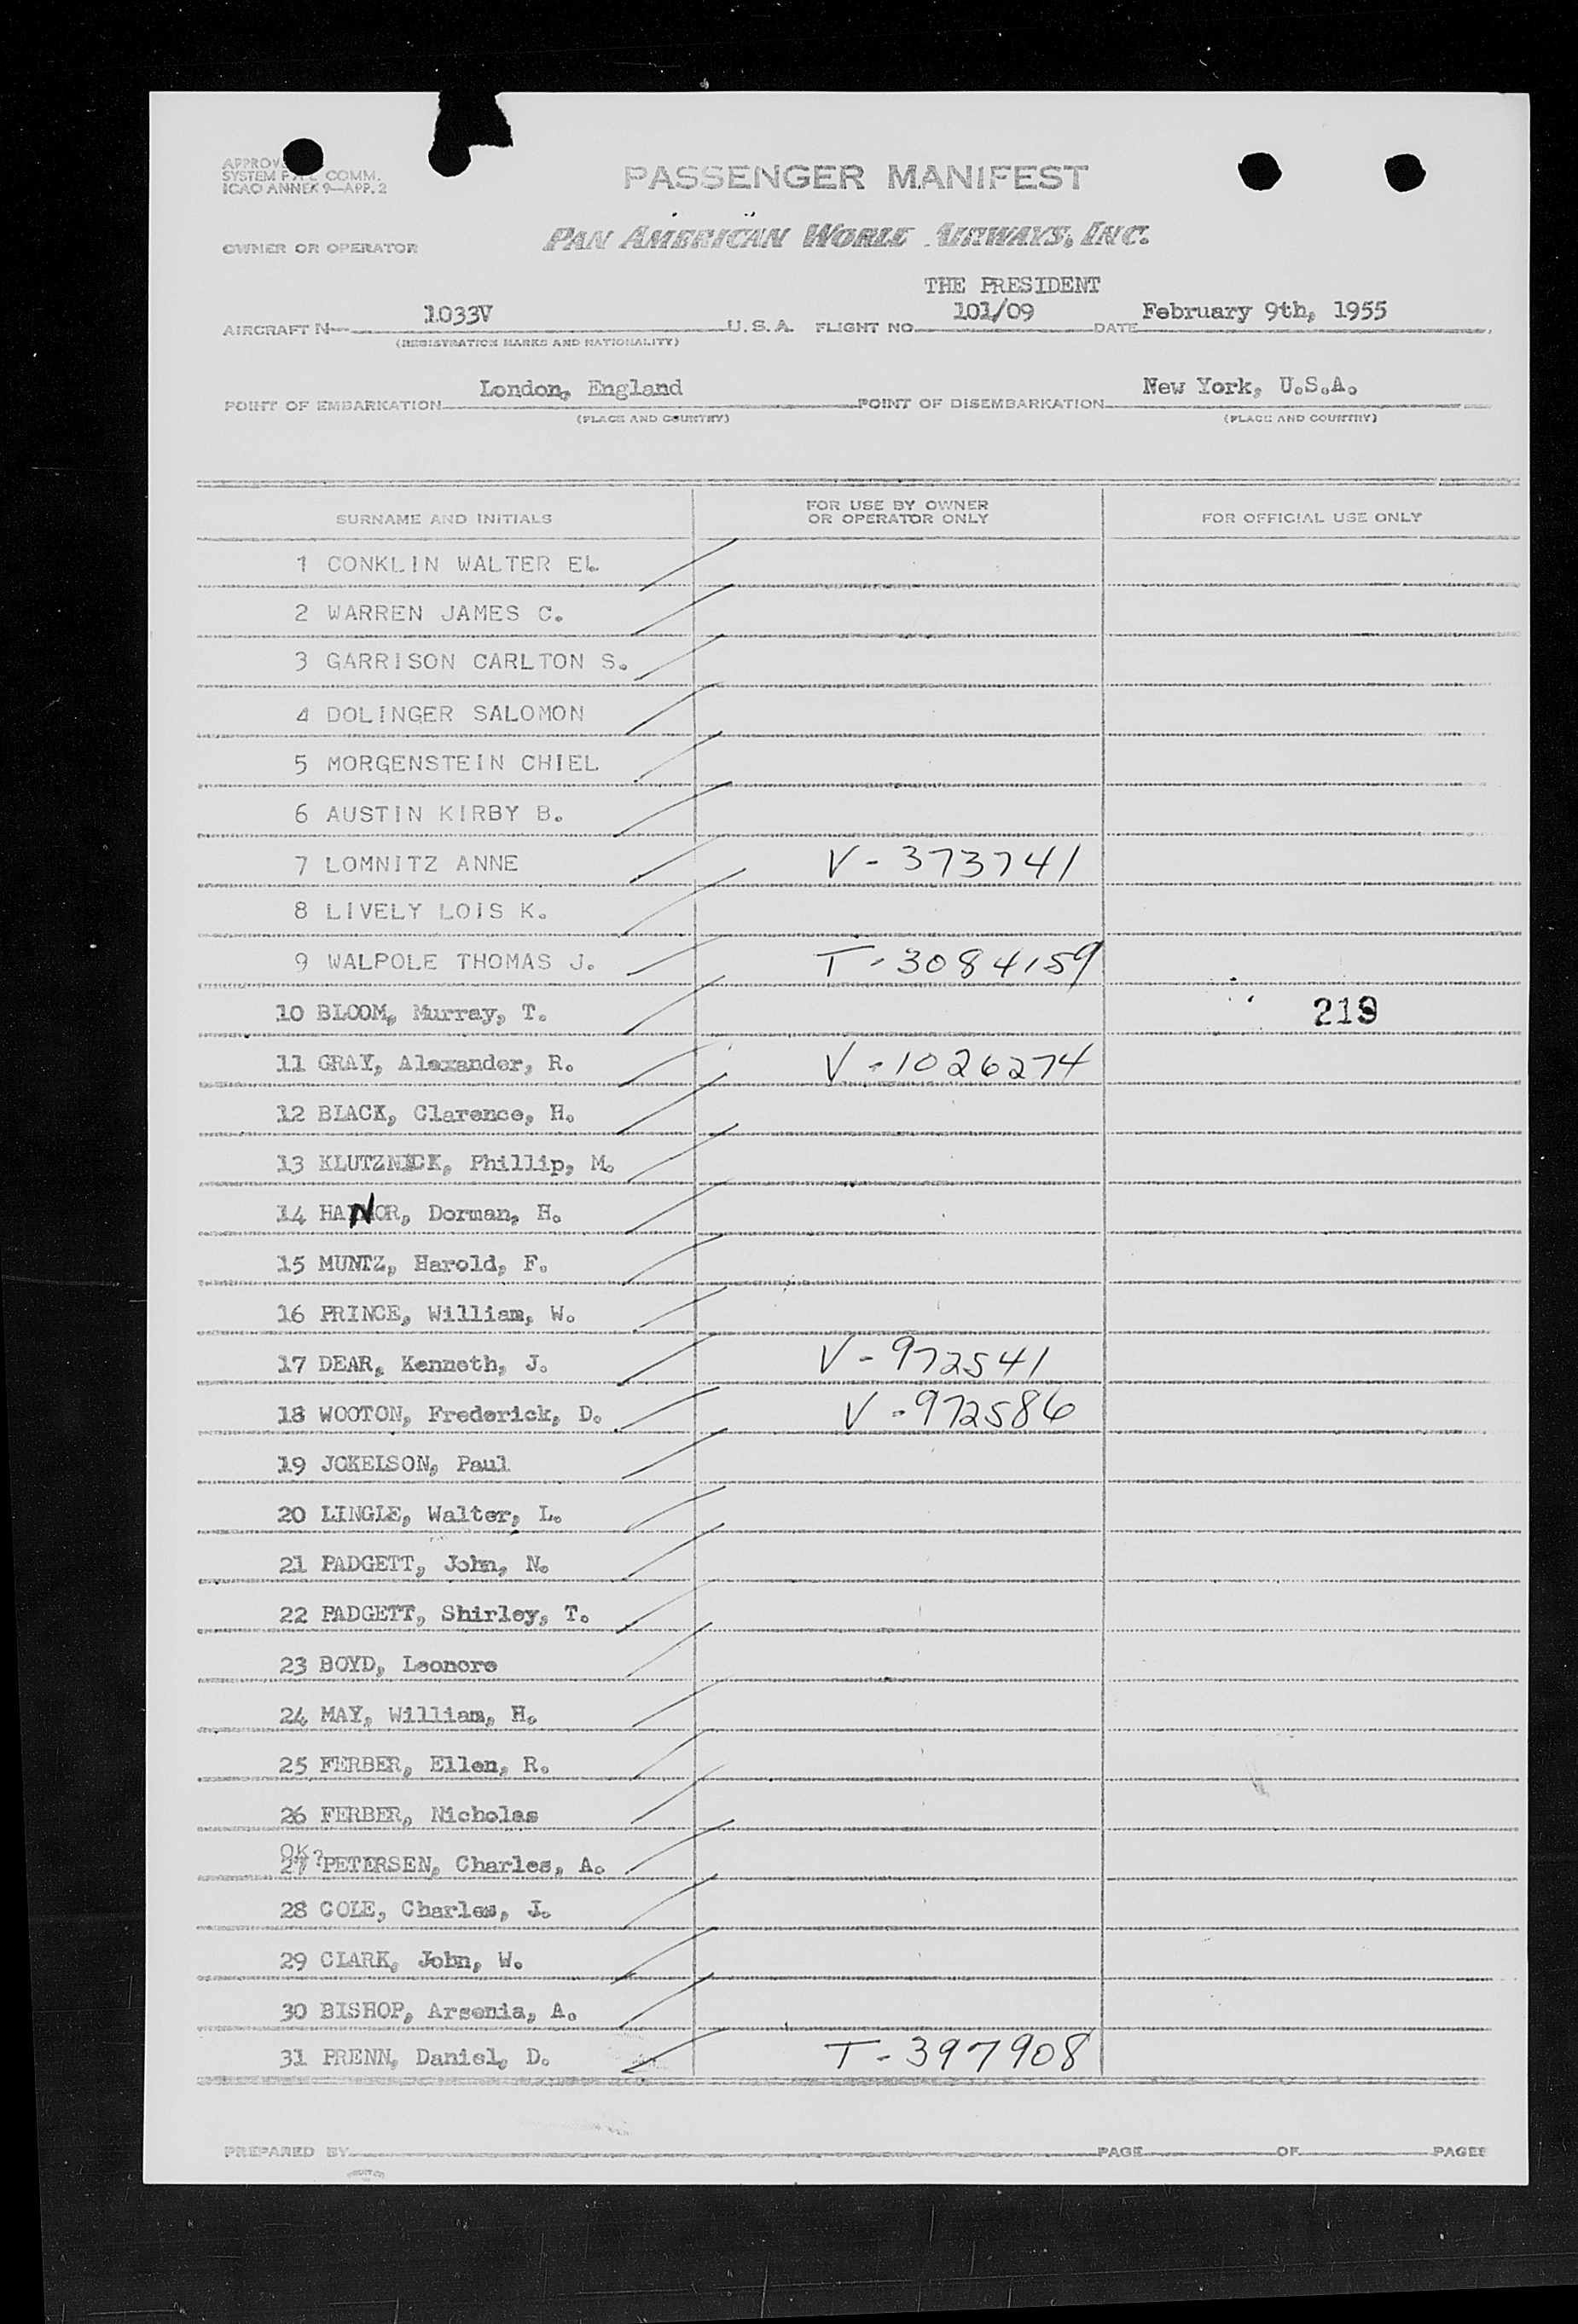 PASSENGER MANIFEST
SYSTEM COMM.
ICAO ANNEX 9—APP. 2
OWNER OR OPERATOR PAN AMERICAN WORLD AIRWAYS, INC.
THE PRESIDENT
AIRCRAFT N 1033V U.S.A. FLIGHT NO. 101/09 DATE February 9th, 1955
(REGISTRATION MARKS AND NATIONALITY)
POINT OF EMBARKATION London, England POINT OF DISEMBARKATION New York, U.S.A.
(PLACE AND COUNTRY) (PLACE AND COUNTRY)
SURNAME AND INITIALS FOR USE BY OWNER OR OPERATOR ONLY FOR OFFICIAL USE ONLY
1 CONKLIN WALTER E.
2 WARREN JAMES C.
3 GARRISON CARLTON S.
4 DOLINGER SALOMON
5 MORGENSTEIN CHIEL
6 AUSTIN KIRBY B.
7 LOMNITZ ANNE V-373741
8 LIVELY LOIS K.
9 WALPOLE THOMAS J. T-3084159
10 BLOOM, Murray, T. 219
11 GRAY, Alexander, R. V-1026274
12 BLACK, Clarence, H.
13 KLUTZNICK, Phillip, M.
14 HANOR, Dorman, H.
15 MUNTZ, Harold, F.
16 PRINCE, William, W.
17 DEAR, Kenneth, J. V-972541
18 WOOTON, Frederick, D. V-972586
19 JOKELSON, Paul
20 LINGLE, Walter, L.
21 PADGETT, John, N.
22 PADGETT, Shirley, T.
23 BOYD, Leonore
24 MAY, William, H.
25 FERBER, Ellen, R.
26 FERBER, Nicholas
OK?
27 PETERSEN, Charles, A.
28 COLE, Charles, J.
29 CLARK, John, W.
30 BISHOP, Arsenia, A.
31 PRENN, Daniel, D. T-397908
PREPARED BY PAGE OF PAGES